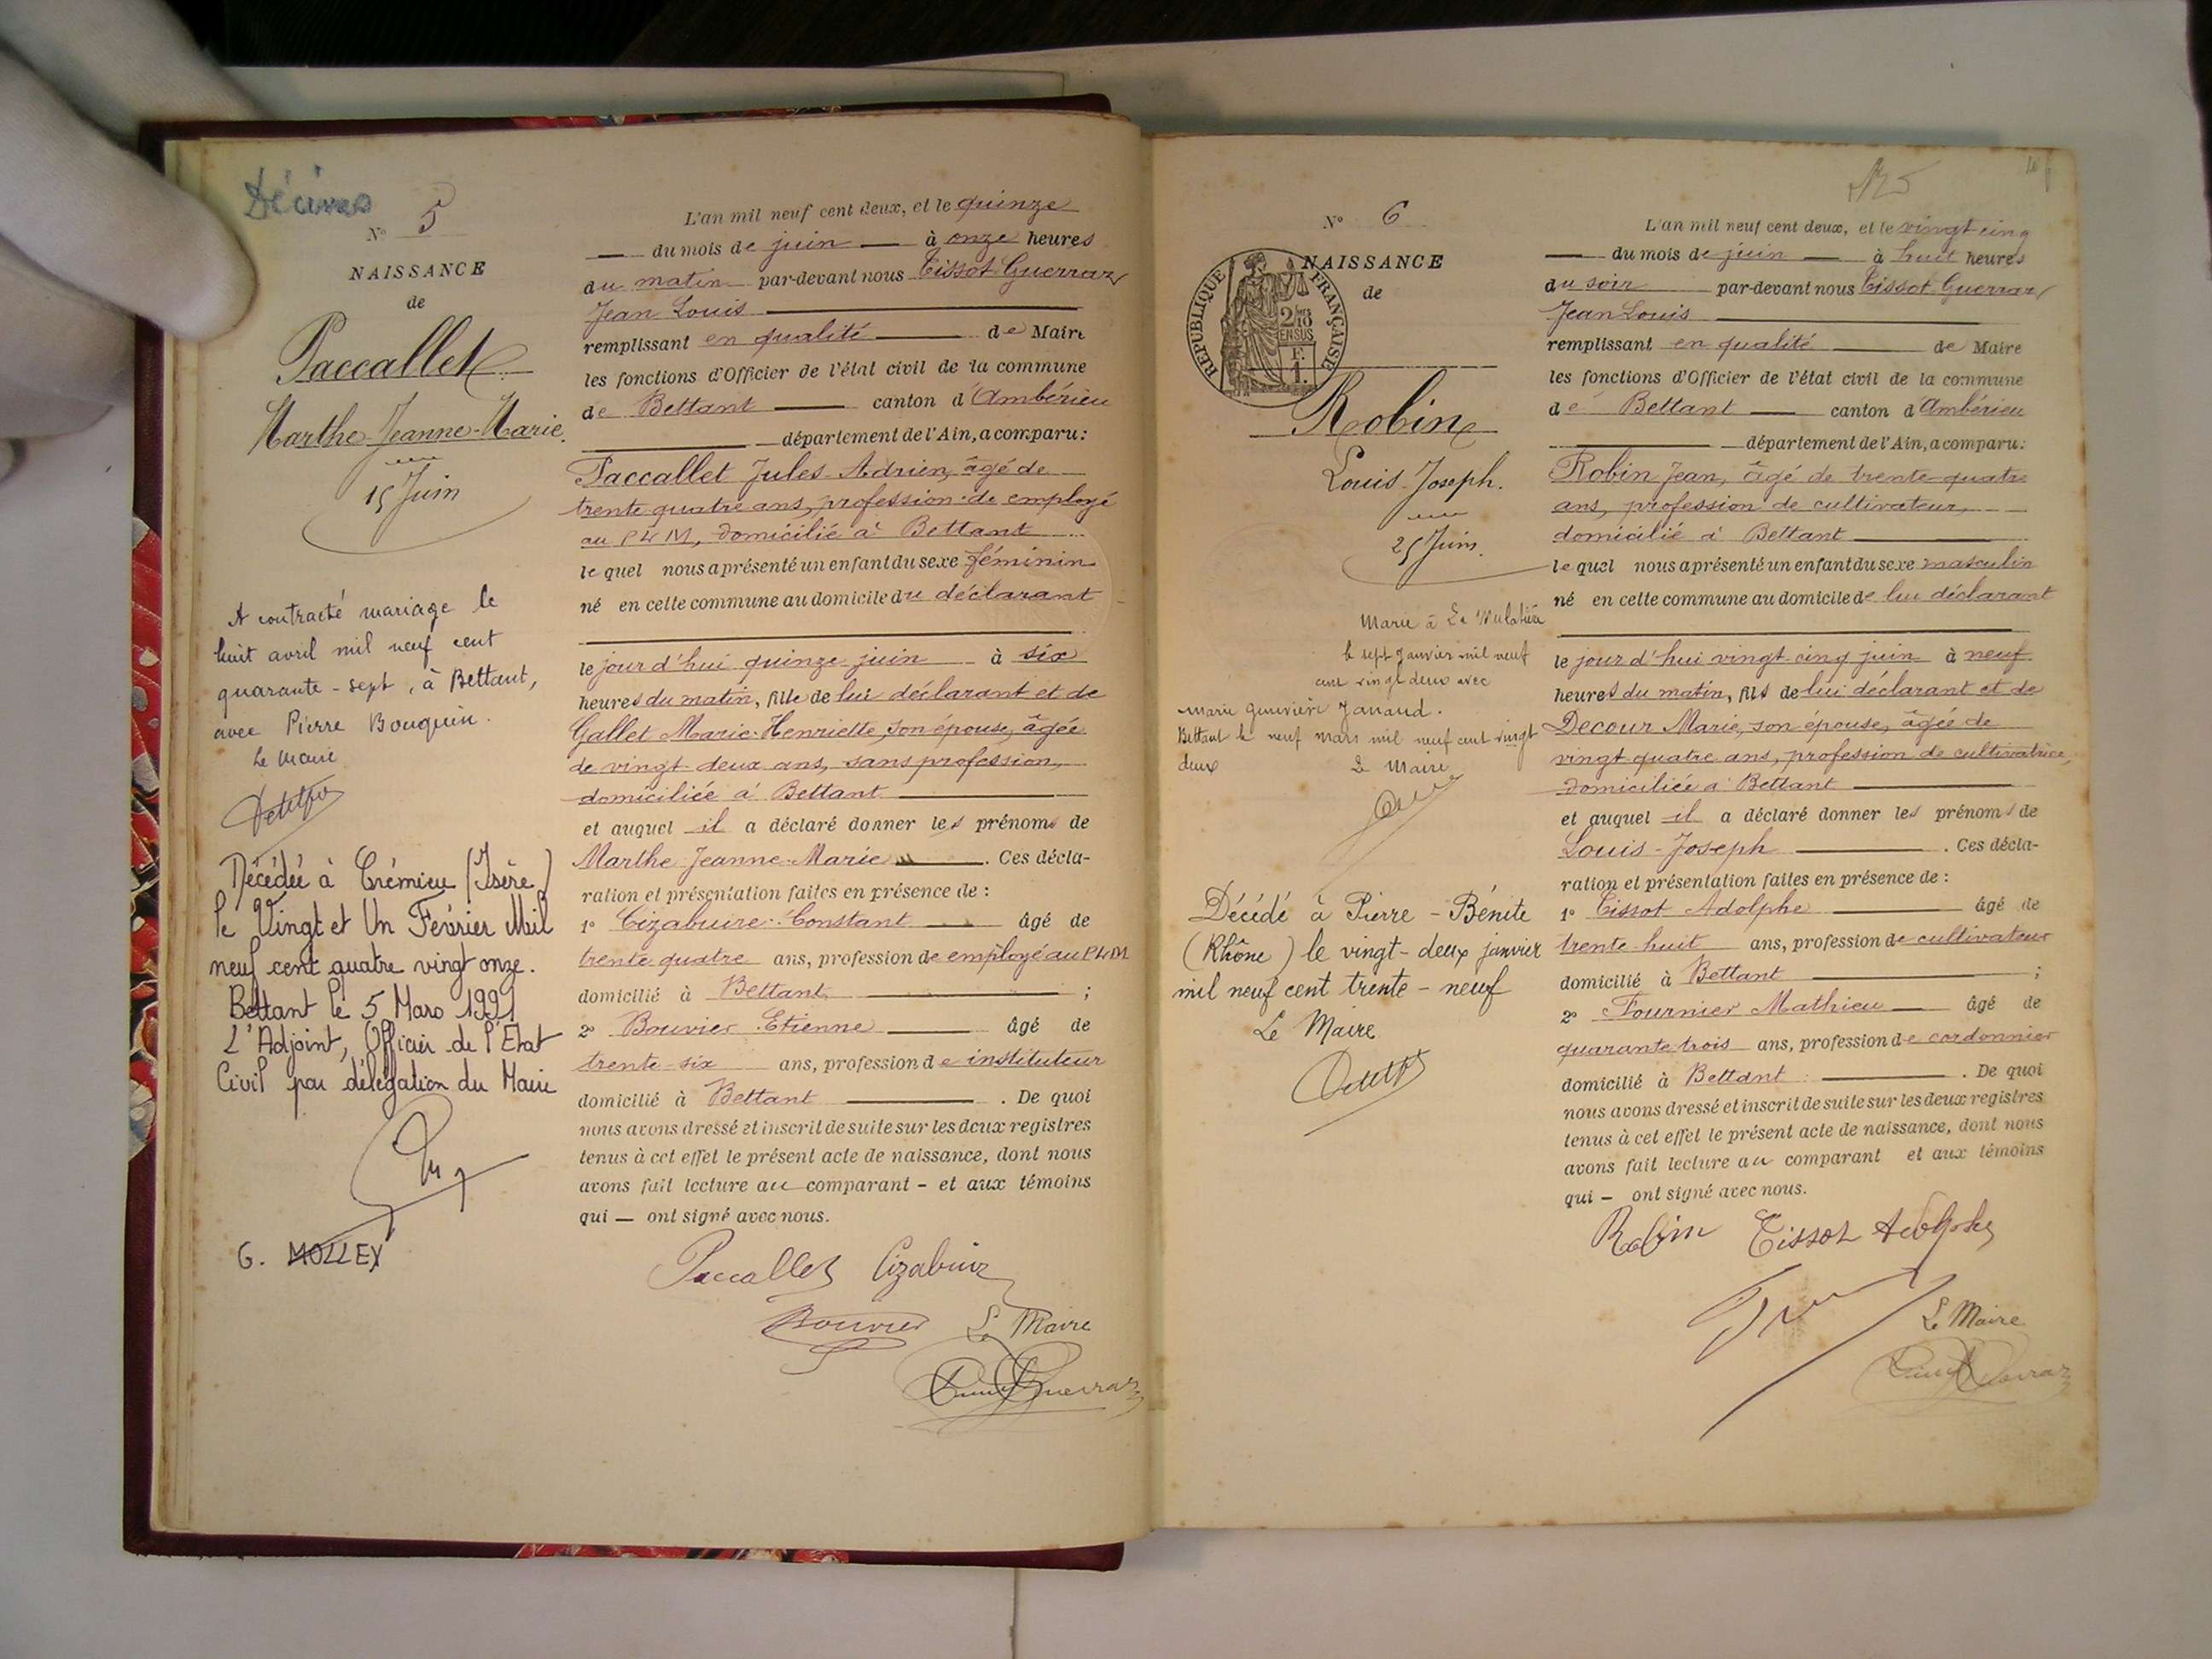 Décines
N° 5
NAISSANCE
de
Paccallet
Marthe-Jeanne-Marie.
15 Juin
A contracté mariage le
huit avril mil neuf cent
quarante-sept, à Bettant,
avec Pierre Bouquin.
Le Maire
Décédée à Crémieu (Isère)
le Vingt et Un Février Mil
neuf cent quatre vingt onze.
Bettant le 5 Mars 1991
L'Adjoint, Officier de l'Etat
Civil par délégation du Maire
G. MOLLEX
L'an mil neuf cent deux, et le quinze
du mois de juin à onze heures
du matin par-devant nous Tissot Guerraz
Jean Louis
remplissant en qualité de Maire
les fonctions d'Officier de l'état civil de la commune
de Bettant canton d'Ambérieu
département de l'Ain, a comparu:
Paccallet Jules-Adrien, âgé de
trente quatre ans, profession de employé
au PLM, domicilié à Bettant
lequel nous a présenté un enfant du sexe féminin
né en cette commune au domicile du déclarant
le jour d'hui quinze juin à six
heures du matin, fille de lui déclarant et de
Gallet Marie-Henriette, son épouse, âgée
de vingt-deux ans, sans profession,
domiciliée à Bettant
et auquel il a déclaré donner les prénoms de
Marthe-Jeanne-Marie. Ces décla-
ration et présentation faites en présence de :
1° Cizabuire Constant âgé de
trente quatre ans, profession de employé au PLM
domicilié à Bettant ;
2° Bouvier Etienne âgé de
trente-six ans, profession de instituteur
domicilié à Bettant. De quoi
nous avons dressé et inscrit de suite sur les deux registres
tenus à cet effet le présent acte de naissance, dont nous
avons fait lecture au comparant - et aux témoins
qui — ont signé avec nous.
Paccallet Cizabuir
Bouvier Le Maire
Guerraz
N° 6
NAISSANCE
de
REPUBLIQUE FRANÇAISE
2/10
EN SUS
F.
1.
Robin
Louis-Joseph.
25 Juin.
Marié à La Mulatière
le sept janvier mil neuf
cent vingt deux avec
Marie Genevieve Janaud.
Bettant le neuf mars mil neuf cent vingt
deux Le Maire
Décédé à Pierre-Bénite
(Rhône) le vingt-deux janvier
mil neuf cent trente-neuf
Le Maire
L'an mil neuf cent deux, et le vingt cinq
du mois de juin à huit heures
du soir par-devant nous Tissot Guerraz
Jean Louis
remplissant en qualité de Maire
les fonctions d'Officier de l'état civil de la commune
de Bettant canton d'Ambérieu
département de l'Ain, a comparu:
Robin Jean, âgé de trente-quatre
ans, profession de cultivateur,
domicilié à Bettant
lequel nous a présenté un enfant du sexe masculin
né en cette commune au domicile de lui déclarant
le jour d'hui vingt-cinq juin à neuf
heures du matin, fils de lui déclarant et de
Decour Marie, son épouse, âgée de
vingt quatre ans, profession de cultivatrice,
domiciliée à Bettant
et auquel il a déclaré donner les prénoms de
Louis-Joseph. Ces décla-
ration et présentation faites en présence de :
1° Tissot Adolphe âgé de
trente-huit ans, profession de cultivateur
domicilié à Bettant ;
2° Fournier Mathieu âgé de
quarante trois ans, profession de cordonnier
domicilié à Bettant. De quoi
nous avons dressé et inscrit de suite sur les deux registres
tenus à cet effet le présent acte de naissance, dont nous
avons fait lecture au comparant et aux témoins
qui — ont signé avec nous.
Robin Tissot Adolphe
Le Maire
Guerraz